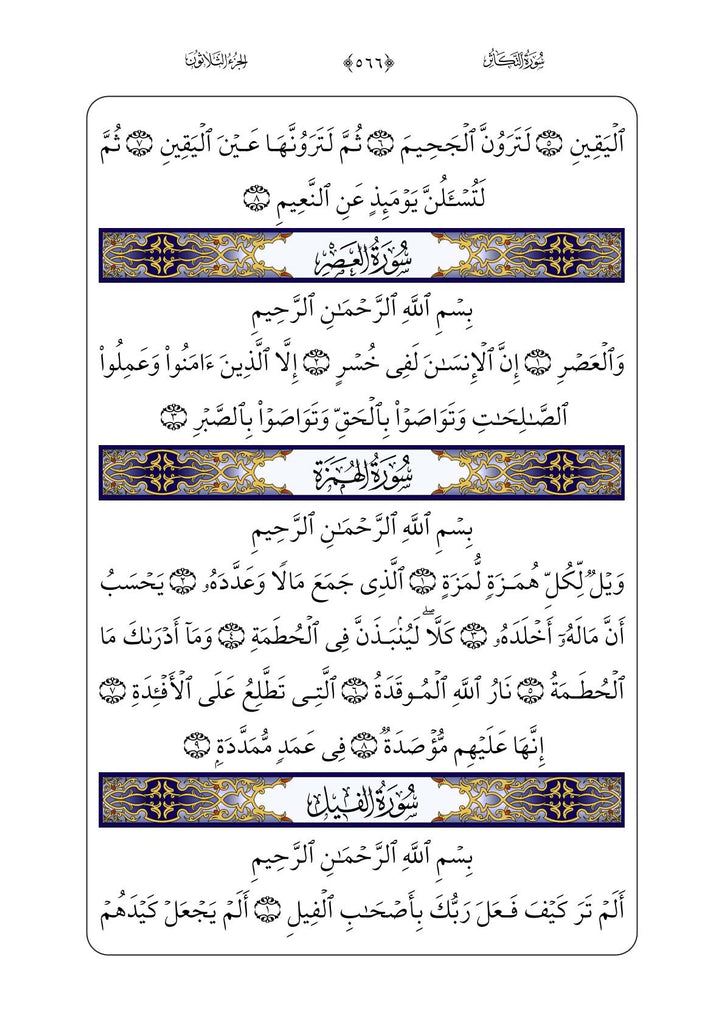 سُورَةُ التَّكَاثُرِ ﴿٥٦٦﴾ الجُزْءُ الثَّلَاثُونَ
ٱلۡيَقِينِ ٥ لَتَرَوُنَّ ٱلۡجَحِيمَ ٦ ثُمَّ لَتَرَوُنَّهَا عَيۡنَ ٱلۡيَقِينِ ٧ ثُمَّ
لَتُسۡـَٔلُنَّ يَوۡمَئِذٍ عَنِ ٱلنَّعِيمِ ٨
سُورَةُ العَصْرِ
بِسۡمِ ٱللَّهِ ٱلرَّحۡمَٰنِ ٱلرَّحِيمِ
وَٱلۡعَصۡرِ ١ إِنَّ ٱلۡإِنسَٰنَ لَفِى خُسۡرٍ ٢ إِلَّا ٱلَّذِينَ ءَامَنُواْ وَعَمِلُواْ
ٱلصَّٰلِحَٰتِ وَتَوَاصَوۡاْ بِٱلۡحَقِّ وَتَوَاصَوۡاْ بِٱلصَّبۡرِ ٣
سُورَةُ الهُمَزَةِ
بِسۡمِ ٱللَّهِ ٱلرَّحۡمَٰنِ ٱلرَّحِيمِ
وَيۡلٌ لِّكُلِّ هُمَزَةٍ لُّمَزَةٍ ١ ٱلَّذِى جَمَعَ مَالًا وَعَدَّدَهُۥ ٢ يَحۡسَبُ
أَنَّ مَالَهُۥٓ أَخۡلَدَهُۥ ٣ كَلَّاۖ لَيُنۢبَذَنَّ فِى ٱلۡحُطَمَةِ ٤ وَمَآ أَدۡرَىٰكَ مَا
ٱلۡحُطَمَةُ ٥ نَارُ ٱللَّهِ ٱلۡمُوقَدَةُ ٦ ٱلَّتِى تَطَّلِعُ عَلَى ٱلۡأَفۡـِٔدَةِ ٧
إِنَّهَا عَلَيۡهِم مُّؤۡصَدَةٌ ٨ فِى عَمَدٍ مُّمَدَّدَةِۭ ٩
سُورَةُ الفِيلِ
بِسۡمِ ٱللَّهِ ٱلرَّحۡمَٰنِ ٱلرَّحِيمِ
أَلَمۡ تَرَ كَيۡفَ فَعَلَ رَبُّكَ بِأَصۡحَٰبِ ٱلۡفِيلِ ١ أَلَمۡ يَجۡعَلۡ كَيۡدَهُمۡ